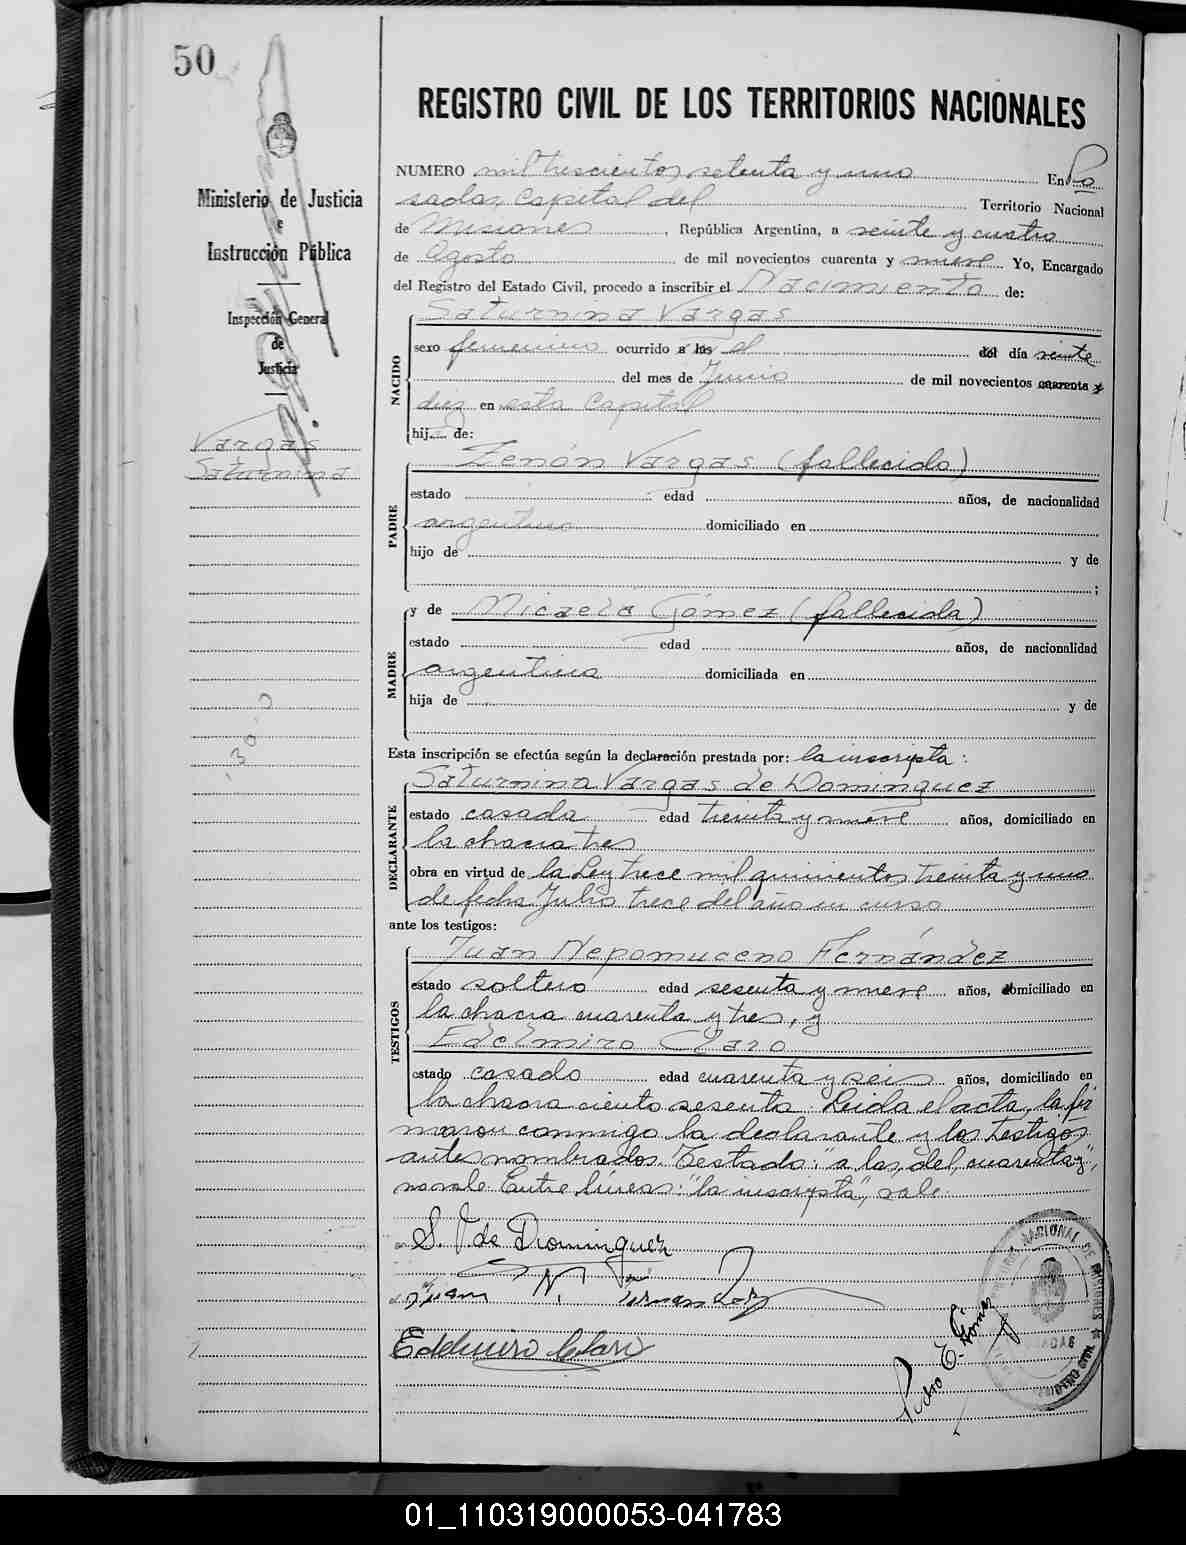 50
Ministerio de Justicia
e
Instrucción Pública
Inspección General
de
Justicia
Vargas
Saturnina
REGISTRO CIVIL DE LOS TERRITORIOS NACIONALES
NUMERO mil trescientos setenta y uno En Po
sadas, Capital del Territorio Nacional
de Misiones, República Argentina, a veinte y cuatro
de Agosto de mil novecientos cuarenta y nueve Yo, Encargado
del Registro del Estado Civil, procedo a inscribir el Nacimiento de:
NACIDO
Saturnina Vargas
sexo femenino ocurrido a las el del día veinte
del mes de Junio de mil novecientos cuarenta y
diez en esta Capital
hij de:
PADRE
Zenón Vargas (fallecido)
estado edad años, de nacionalidad
argentino domiciliado en
hijo de y de
;
MADRE
y de Micaela Gómez (fallecida)
estado edad años, de nacionalidad
argentina domiciliada en
hija de y de
Esta inscripción se efectúa según la declaración prestada por: la inscripta:
DECLARANTE
Saturnina Vargas de Dominguez
estado casada edad treinta y nueve años, domiciliado en
la chacra tres
obra en virtud de la Ley trece mil quinientos treinta y uno
de fecha Julio trece del año en curso
ante los testigos:
TESTIGOS
Juan Nepomuceno Fernández
estado soltero edad sesenta y nueve años, domiciliado en
la chacra cuarenta y tres, y
Edelmiro Claro
estado casado edad cuarenta y seis años, domiciliado en
la chacra ciento sesenta. Leida el acta, la fir
maron conmigo la declarante y los testigos
antes nombrados. Testado: "a las, del, cuarenta y",
no vale. Entre líneas: "la inscripta", vale.
S. V de Dominguez
Juan N. Fernandez
Edelmiro Claro
Pedro E. Gómez
NACIONAL DE MISIONES
POSADAS
REGISTRO CIVIL
01_110319000053-041783